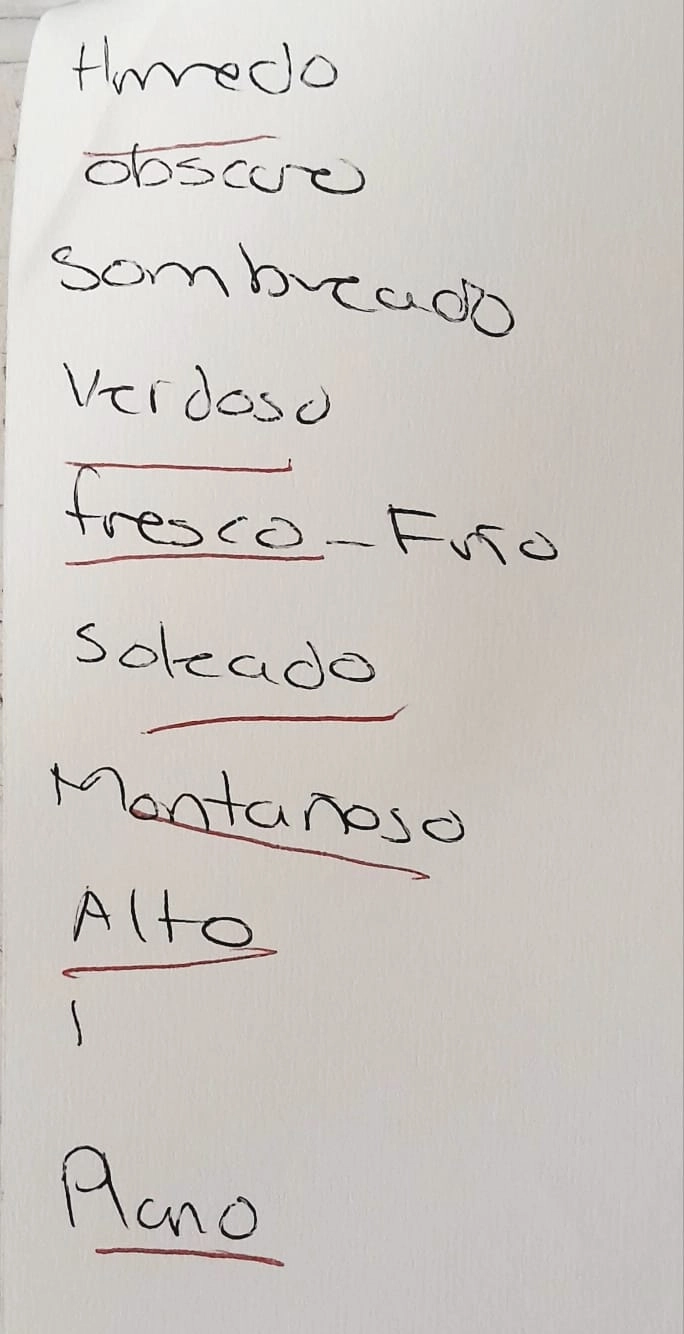 Humedo
obscuro
Sombreado
Verdoso
fresco - Frio
Soleado
Montañoso
Alto
Plano